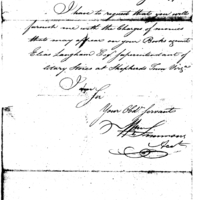 I have to request that you will
furnish me with the Charge of monies
that may appear on your Books against
Elias Langham Esqr. Superintendant of
Military Stores at Shepherds Town Virga.
I am
Sir
Your Obdt. Servant
Wm. Simmons
Acct.